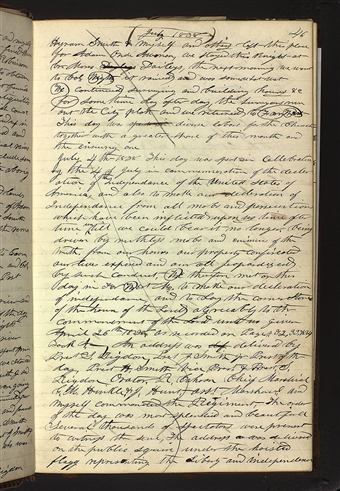 July 1838
Hyrum Smith & Myself and others left this place
for Adam Ondi Ahman, we stayed this night at
brother Daileys, the next morning we went
to Col rained and was somewhat wet
We continued surveying and building houses &c
for some time day after day, the Surveyors run
out the City plat and we returned to
This day was spent
together with a greater share of this month and
the ensuing one
July 4th 1838 This day was spent in Celebrating
the 4 of July in commemoration of the declar-
ation of the Independence of the United States of
America, and also to make our declaration of
Independence from all mobs and persecutions
which have been inflicted upon us time after
time till we could bear it no longer, being
driven by ruthless mobs and enimies of the
truth, from our homes our property confiscated
our lives exposed and our all jeopardized
by such conduct, We therefore met on this
day in Far West Mo to make our declaration
of independence, and to lay the corner Stones
of the house of the Lord agreeably to the
commandment of the Lord unto us given
April 26th 1838 as recorded in Pages 32, 33, & 34
Book An address was delivered by
Prest S Rigdon, Prest J Smith Jr Prest of the
day, Prest H Smith Vice Prest & Prest S.
Rigdon Orator, R Cahoon Chief Marshial
G M Hinkle & J Hunt asst Marshals and
Myself commanded the Regiment. The order
of the day was most splendid and beautifull
Several thousands of spectators were present
to witness the scene, The address was delivered
on the public square under the hoisted
flagg representing the Liberty and Independence